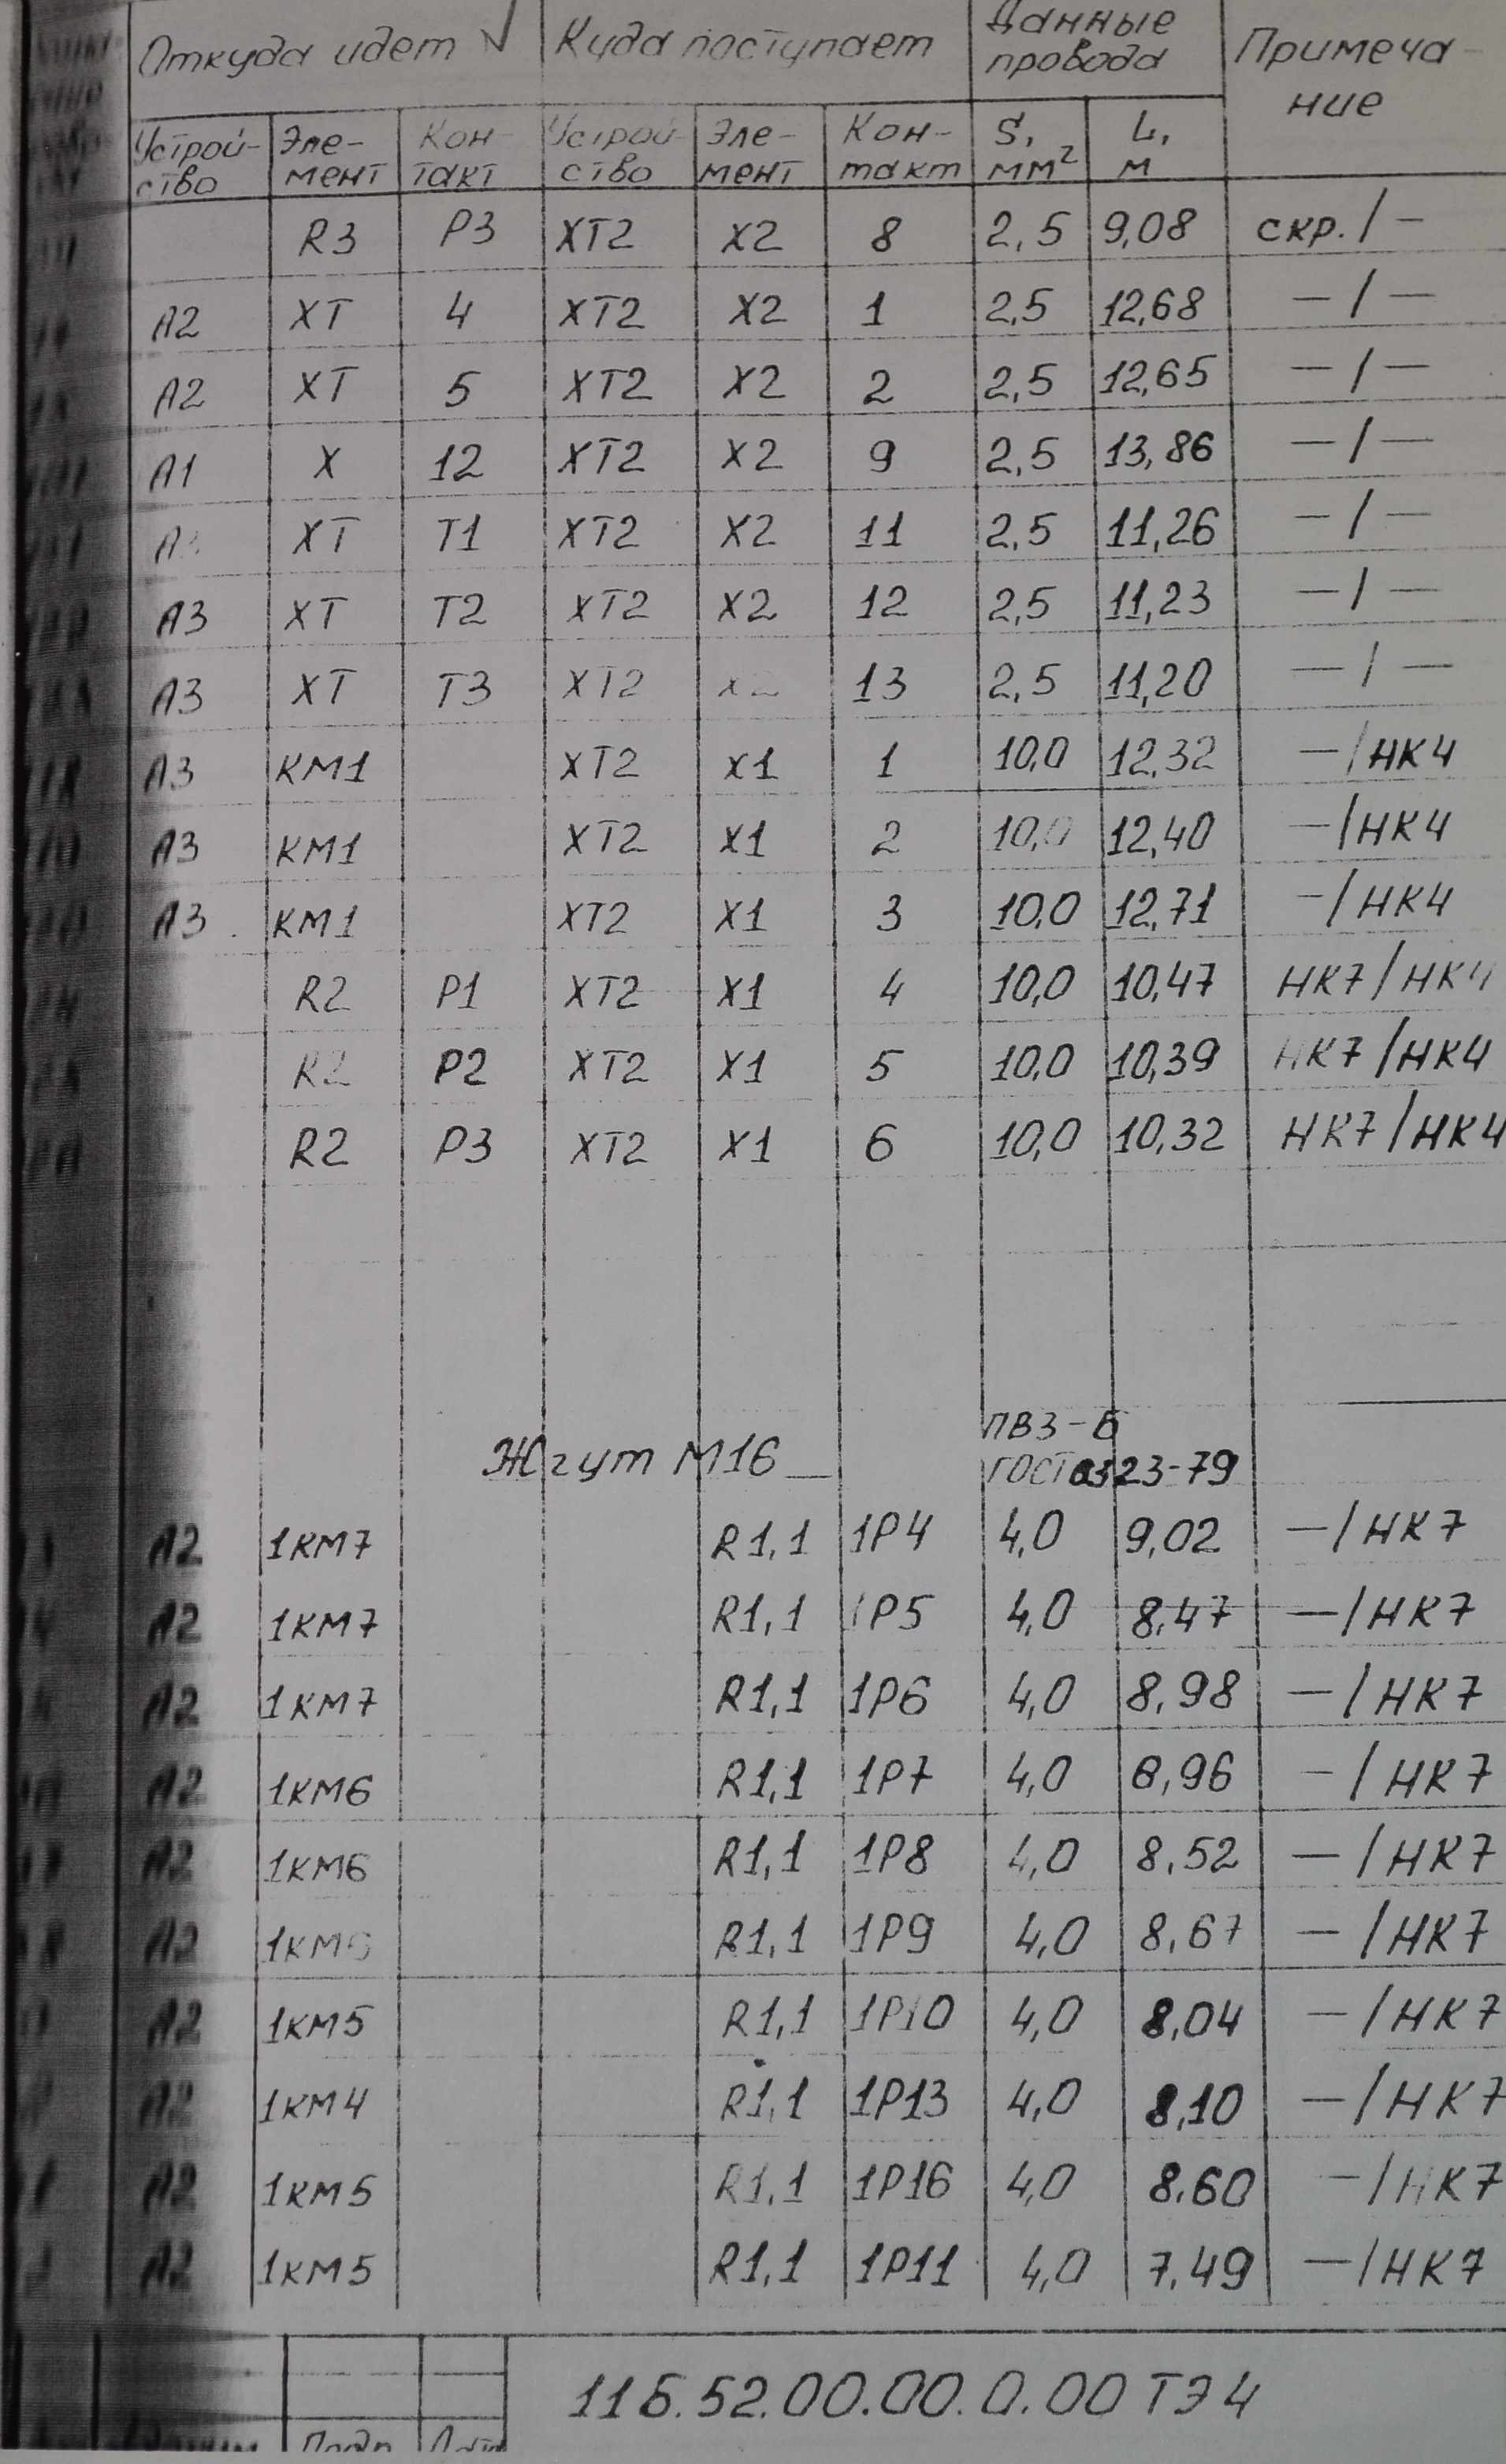 Откуда идет √ Куда поступает Данные провода Примеча-
ние
Устрой-
ство Эле-
мент Кон-
такт Устрой-
ство Эле-
мент Кон-
такт S,
мм² L,
м
R3 P3 XT2 X2 8 2,5 9,08 скр./—
A2 XT 4 XT2 X2 1 2,5 12,68 —/—
A2 XT 5 XT2 X2 2 2,5 12,65 —/—
A1 X 12 XT2 X2 9 2,5 13,86 —/—
XT T1 XT2 X2 11 2,5 11,26 —/—
A3 XT T2 XT2 X2 12 2,5 11,23 —/—
A3 XT T3 XT2 X2 13 2,5 11,20 —/—
A3 KM1 XT2 X1 1 10,0 12,32 —/НК4
A3 KM1 XT2 X1 2 10,0 12,40 —/НК4
A3 KM1 XT2 X1 3 10,0 12,71 —/НК4
R2 P1 XT2 X1 4 10,0 10,47 НК7/НК4
R2 P2 XT2 X1 5 10,0 10,39 НК7/НК4
R2 P3 XT2 X1 6 10,0 10,32 НК7/НК4
ПВ3-Б
Жгут М16 ГОСТ 6323-79
A2 1KM7 R1,1 1P4 4,0 9,02 —/НК7
A2 1KM7 R1,1 1P5 4,0 8,47 —/НК7
A2 1KM7 R1,1 1P6 4,0 8,98 —/НК7
A2 1KM6 R1,1 1P7 4,0 8,96 —/НК7
A2 1KM6 R1,1 1P8 4,0 8,52 —/НК7
A2 1KM6 R1,1 1P9 4,0 8,67 —/НК7
A2 1KM5 R1,1 1P10 4,0 8,04 —/НК7
A2 1KM4 R1,1 1P13 4,0 8,10 —/НК7
A2 1KM5 R1,1 1P16 4,0 8,60 —/НК7
A2 1KM5 R1,1 1P11 4,0 7,49 —/НК7
11Б.52.00.00.0.00 ТЭ4
Подп. Дата